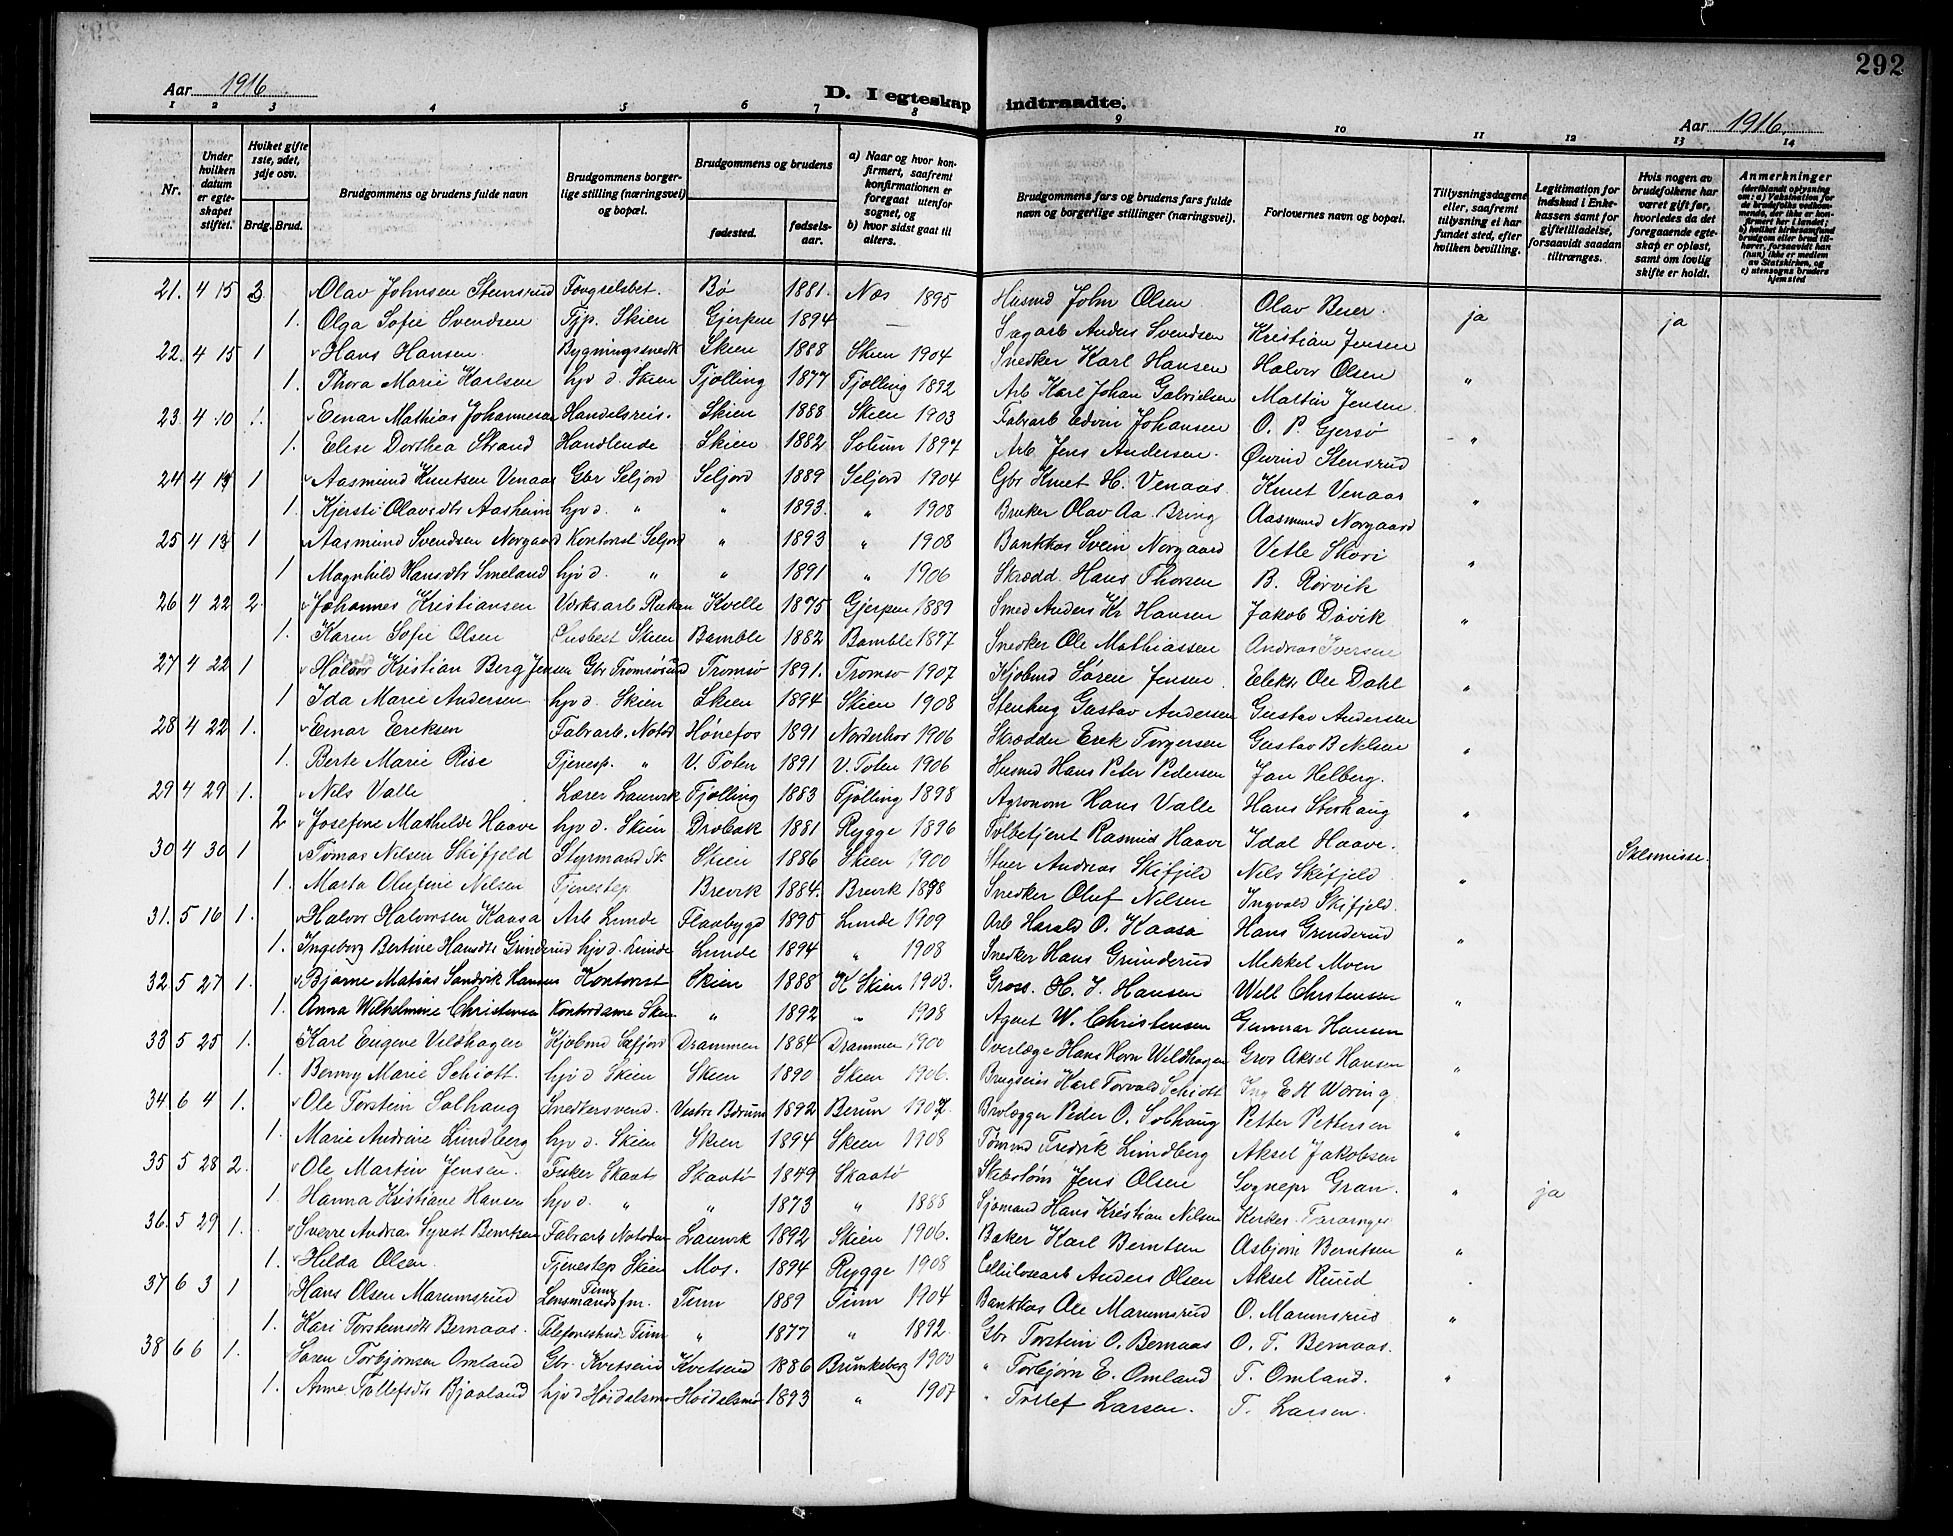 292
Aar 1916
D. I egteskap indtraadte.
Aar 1916
1 2 3 4 5 6 7 8 9 10 11 12 13 14
Nr.
Under hvilken datum er egteskapet stiftet.
Hvilket gifte 1ste, 2det, 3dje osv.
Brdg. Brud.
Brudgommens og brudens fulde navn
Brudgommens borgerlige stilling (næringsvei) og bopæl.
Brudgommens og brudens
fødested. fødselsaar.
a) Naar og hvor konfirmert, saafremt konfirmationen er foregaat utenfor sognet, og
b) hvor sidst gaat til alters.
Brudgommens fars og brudens fars fulde navn og borgerlige stillinger (næringsvei).
Forlovernes navn og bopæl.
Tillysningsdagene eller, saafremt tillysning ei har fundet sted, efter hvilken bevilling.
Legitimation for indskud i Enkekassen samt for giftetilladelse, forsaavidt saadan tiltrænges.
Hvis nogen av brudefolkene har været gift før, hvorledes da det foregaaende egteskap er opløst, samt om lovlig skifte er holdt.
Anmerkninger (deriblandt oplysning om: a) Vaksination for de brudefolks vedkommende, der ikke er konfirmert her i landet; b) hvilket kirkesamfund brudgom eller brud tilhører, forsaavidt han (hun) ikke er medlem av Statskirken, og c) utensogns bruders hjemsted
21. 4 15 Olav Johnsen Stensrud Fængselsbet. Bø 1881. Næs 1895 Husmd John Olsen Olav Beier. ja ja
1. Olga Sofie Svendsen Tjp. Skien Gjerpen 1894 — Sagarb Anders Svendsen Kristian Jensen
22. 4 15 1 Hans Hansen. Bygningssnedk Skien 1888 Skien 1904 Snedker Karl Hansen Halvor Olsen "
1. Thora Marie Karlsen hjv d. Skien Tjølling 1877 Tjølling 1892 Arb Karl Johan Gabrielsen Martin Jensen.
23. 4 10 1. Einar Mathias Johannesen Handelsreis. Skien 1888 Skien 1903 Fabrarb Edvin Johansen O. P. Gjersø "
1. Elise Dorthea Strand Handlende Skien 1882 Solum 1897 Arb. Jens Andersen. Øivind Stensrud
24 4 1 Aasmund Knutsen Venaas Gbr Seljord Seljord 1889 Seljord 1904 Gbr Knut H. Venaas Knut Venaas "
1. Kjersti Olavsdtr Aasheim hjv d. " " 1893. " 1908 Bruker Olav Aa. Bring Aasmund Norgaard
25 4 13 1 Aasmund Svendsen Norgaard Kontorist Seljord " 1893 " 1908 Bankkas Svein Norgaard Vetle Skori "
1 Magnhild Hansdtr Smeland hjv d. " " 1891 " 1906 Skrædd. Hans Thorsen B. Rørvik
26 4 22 2. Johannes Kristiansen Værksarb Rukan Kvelle 1875 Gjerpen 1889 Smed Anders Kr Hansen Jakob Døvik "
1. Karen Sofie Olsen Husbest Skien Bamble 1882 Bamble 1897 Snedker Ole Mathiassen Andreas Iversen
27 4 22 1 Halvor Kristian Berg Jensen Gbr Tromsøsund Tromsø 1891. Tromsø 1907 Kjøbmd Søren Jensen Elektr Ole Dahl "
1 Ida Marie Andersen hjv d. Skien Skien 1894 Skien 1908 Stenhug Gustav Andersen Gustav Andersen
28 4 22 1. Einar Eriksen Fabrarb. Notod Hønefos 1891 Norderhov 1906 Skrædder Erik Torgersen Gustav B Nilsen "
1. Berte Marie Rise Tjenesp. " V. Toten 1891 V. Toten 1906 Husmd Hans Peter Pedersen Jan Helberg.
29 4 29 1. Nils Valle Lærer Laurvik Tjølling 1883 Tjølling 1898 Agronom Hans Valle Hans Storhaug "
2 Josefine Mathilde Haave hjv d. Skien Drøbak 1881 Rygge 1896 Tolbetjent Rasmus Haave Idal Haave. Skilsmisse.
30 4 30 1 Tomas Nilsen Skifjeld Styrmand Sk Skien 1886 Skien 1900 Stuer Andreas Skifjeld Nils Skifjeld "
1. Marta Olufine Nilsen Tjenestep Brevik 1884. Brevik 1898 Snedker Oluf Nilsen Ingvald Skifjeld.
31. 5 16 1. Halvor Halvorsen Kaasa Arb Lunde Flaabygd 1895 Lunde 1909 Arb Harald O. Kaasa Hans Grinderud "
1. Ingeborg Bertine Hansdtr Grinderud hjv d. Lunde Lunde 1894 " 1908 Snedker Hans Grinderud Mikkel Moen
32. 5 27 1. Bjarne Matias Sandvik Hansen Kontorist Skien 1888 K Skien 1903. Gross. H. J. Hansen Will Christensen "
1. Anna Wilhelmine Christensen Kontordame Skien " 1892 " 1908 Agent W. Christensen Gunnar Hansen
33 5 25 1. Karl Eugene Vildhagen Kjøbmd Sæfjord Drammen 1884 Drammen 1900 Overlæge Hans Horn Wildhagen Gros Aksel Hansen "
1. Benny Marie Schiøtt. hjv d Skien Skien 1890 Skien 1906. Brugseier Karl Torvald Schiøtt Ing E H Wæring
34 6 4 1. Ole Torstein Solhaug Snedkersvend. Vestre Bærum 1892 Berum 1907. Brolægger Peder O. Solhaug Petter Pettersen "
1. Marie Andrine Lundberg hjv d. Skien Skien 1894 Skien 1908 Tømmd Fredrik Lundberg Aksel Jakobsen
35 5 28 2. Ole Martin Jensen. Fisker Skaatø Skaatø 1849 Skaatø Jens Olsen Sognepr Gran. " ja
1. Hanna Kristiane Hansen hjv d. " " 1873 " 1888 Sjømand Hans Kristian Nilsen Kirkes.
36. 5 29 1. Sverre Andreas Berntsen Fabrarb Notodden Laurvik 1892 Skien 1906. Baker Karl Berntsen Asbjørn Berntsen "
1. Hilda Olsen. Tjenestep Skien Mos. 1894 Rygge 1908 Cellulosearb Anders Olsen Aksel Ruud
37 6 3 1 Hans Olsen Marumsrud Lensmandsfm. Tinn Tinn 1889 Tinn 1904 Bankkas Ole Marumsrud O. Marumsrud "
1. Kari Torsteinsdtr Bernaas. Telefonbud. Tinn " 1877 " 1892. Gbr Torstein O. Bernaas O. T. Bernaas.
38 6 6 1. Søren Torbjørnsen Omland Gbr. Kvitseid Kvitseid 1886 Brunkeberg 1900 " Torbjørn E. Omland T. Omland. "
1. Anne Tollefsdtr Bjaaland hjv d Høidalsmo Høidalsmo 1893 " 1907 " Tollef Larsen. T. Larsen.